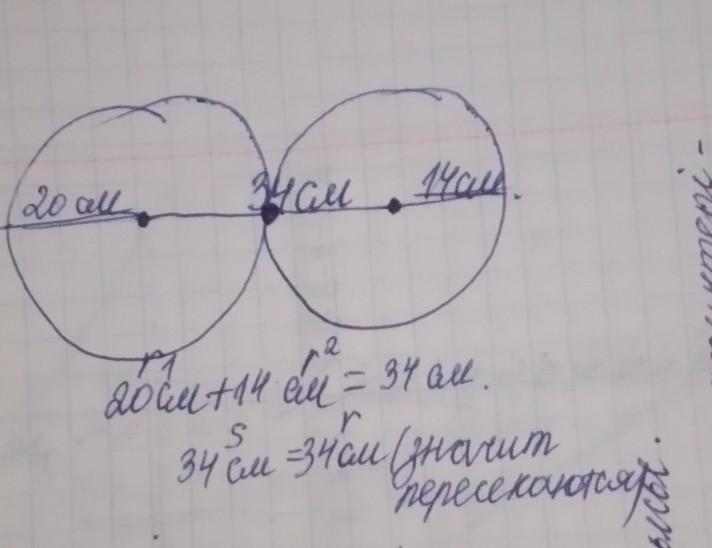 20 см 34 см 14 см.
r1 r2
20 см + 14 см = 34 см.
S r
34 см = 34 см (значит
пересекаются)